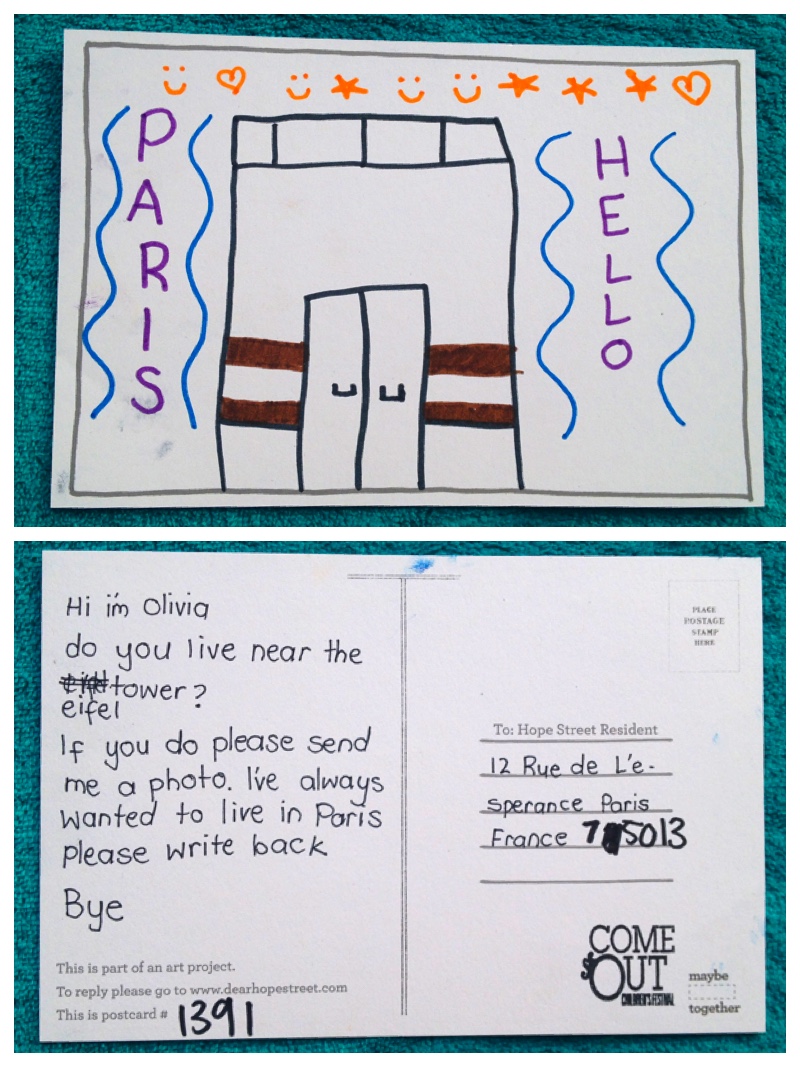 PARIS
HELLO
Hi i'm Olivia
do you live near the
tower?
eifel
If you do please send
me a photo. I've always
wanted to live in Paris
please write back
Bye
This is part of an art project.
To reply please go to www.dearhopestreet.com
This is postcard # 1391
PLACE
POSTAGE
STAMP
HERE
To: Hope Street Resident
12 Rue de L'e-
sperance Paris
France 75013
COME
OUT
CHILDREN'S FESTIVAL
maybe
together